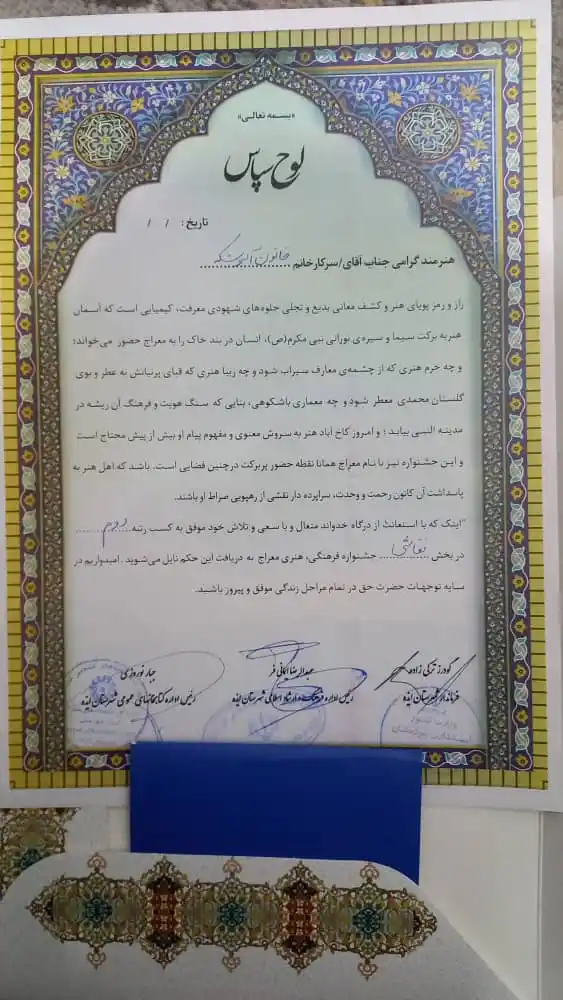 «بسمه تعالی»
لوح سپاس
تاریخ: / /
هنرمند گرامی جناب آقای/سرکارخانم خاتون
راز و رمز پویای هنر و کشف معانی بدیع و تجلی جلوه‌های شهودی معرفت، کیمیایی است که آسمان
هنر به برکت سیما و سیره‌ی نورانی نبی مکرم(ص)، انسان در بند خاک را به معراج حضور می‌خواند؛
و چه خرم هنری که از چشمه‌ی معارف سیراب شود و چه زیبا هنری که قبای پرنیانش به عطر و بوی
گلستان محمدی معطر شود و چه معماری باشکوهی، بنایی که سنگ هویت و فرهنگ آن ریشه در
مدینه النبی بیابد؛ و امروز کاخ آباد هنر به سروش معنوی و مفهوم پیام او بیش از پیش محتاج است
و این جشنواره نیز با نام معراج همانا نقطه حضور پربرکت درچنین فضایی است. باشد که اهل هنر به
پاسداشت آن کانون رحمت و وحدت، سراپرده دار نقشی از رهپویی صراط او باشند.
"اینک که با استعانت از درگاه خدواند متعال و با سعی و تلاش خود موفق به کسب رتبه دوم
در بخش نقاشی جشنواره فرهنگی، هنری معراج به دریافت این حکم نایل می‌شوید. امیدواریم در
سایه توجهات حضرت حق در تمام مراحل زندگی موفق و پیروز باشید.
گودرز ترکی زاده عبدالرضا ایمانی فر جبار نوروزی
فرماندار شهرستان ایذه رئیس اداره فرهنگ و ارشاد اسلامی شهرستان ایذه رئیس اداره کتابخانه‌های عمومی شهرستان ایذه